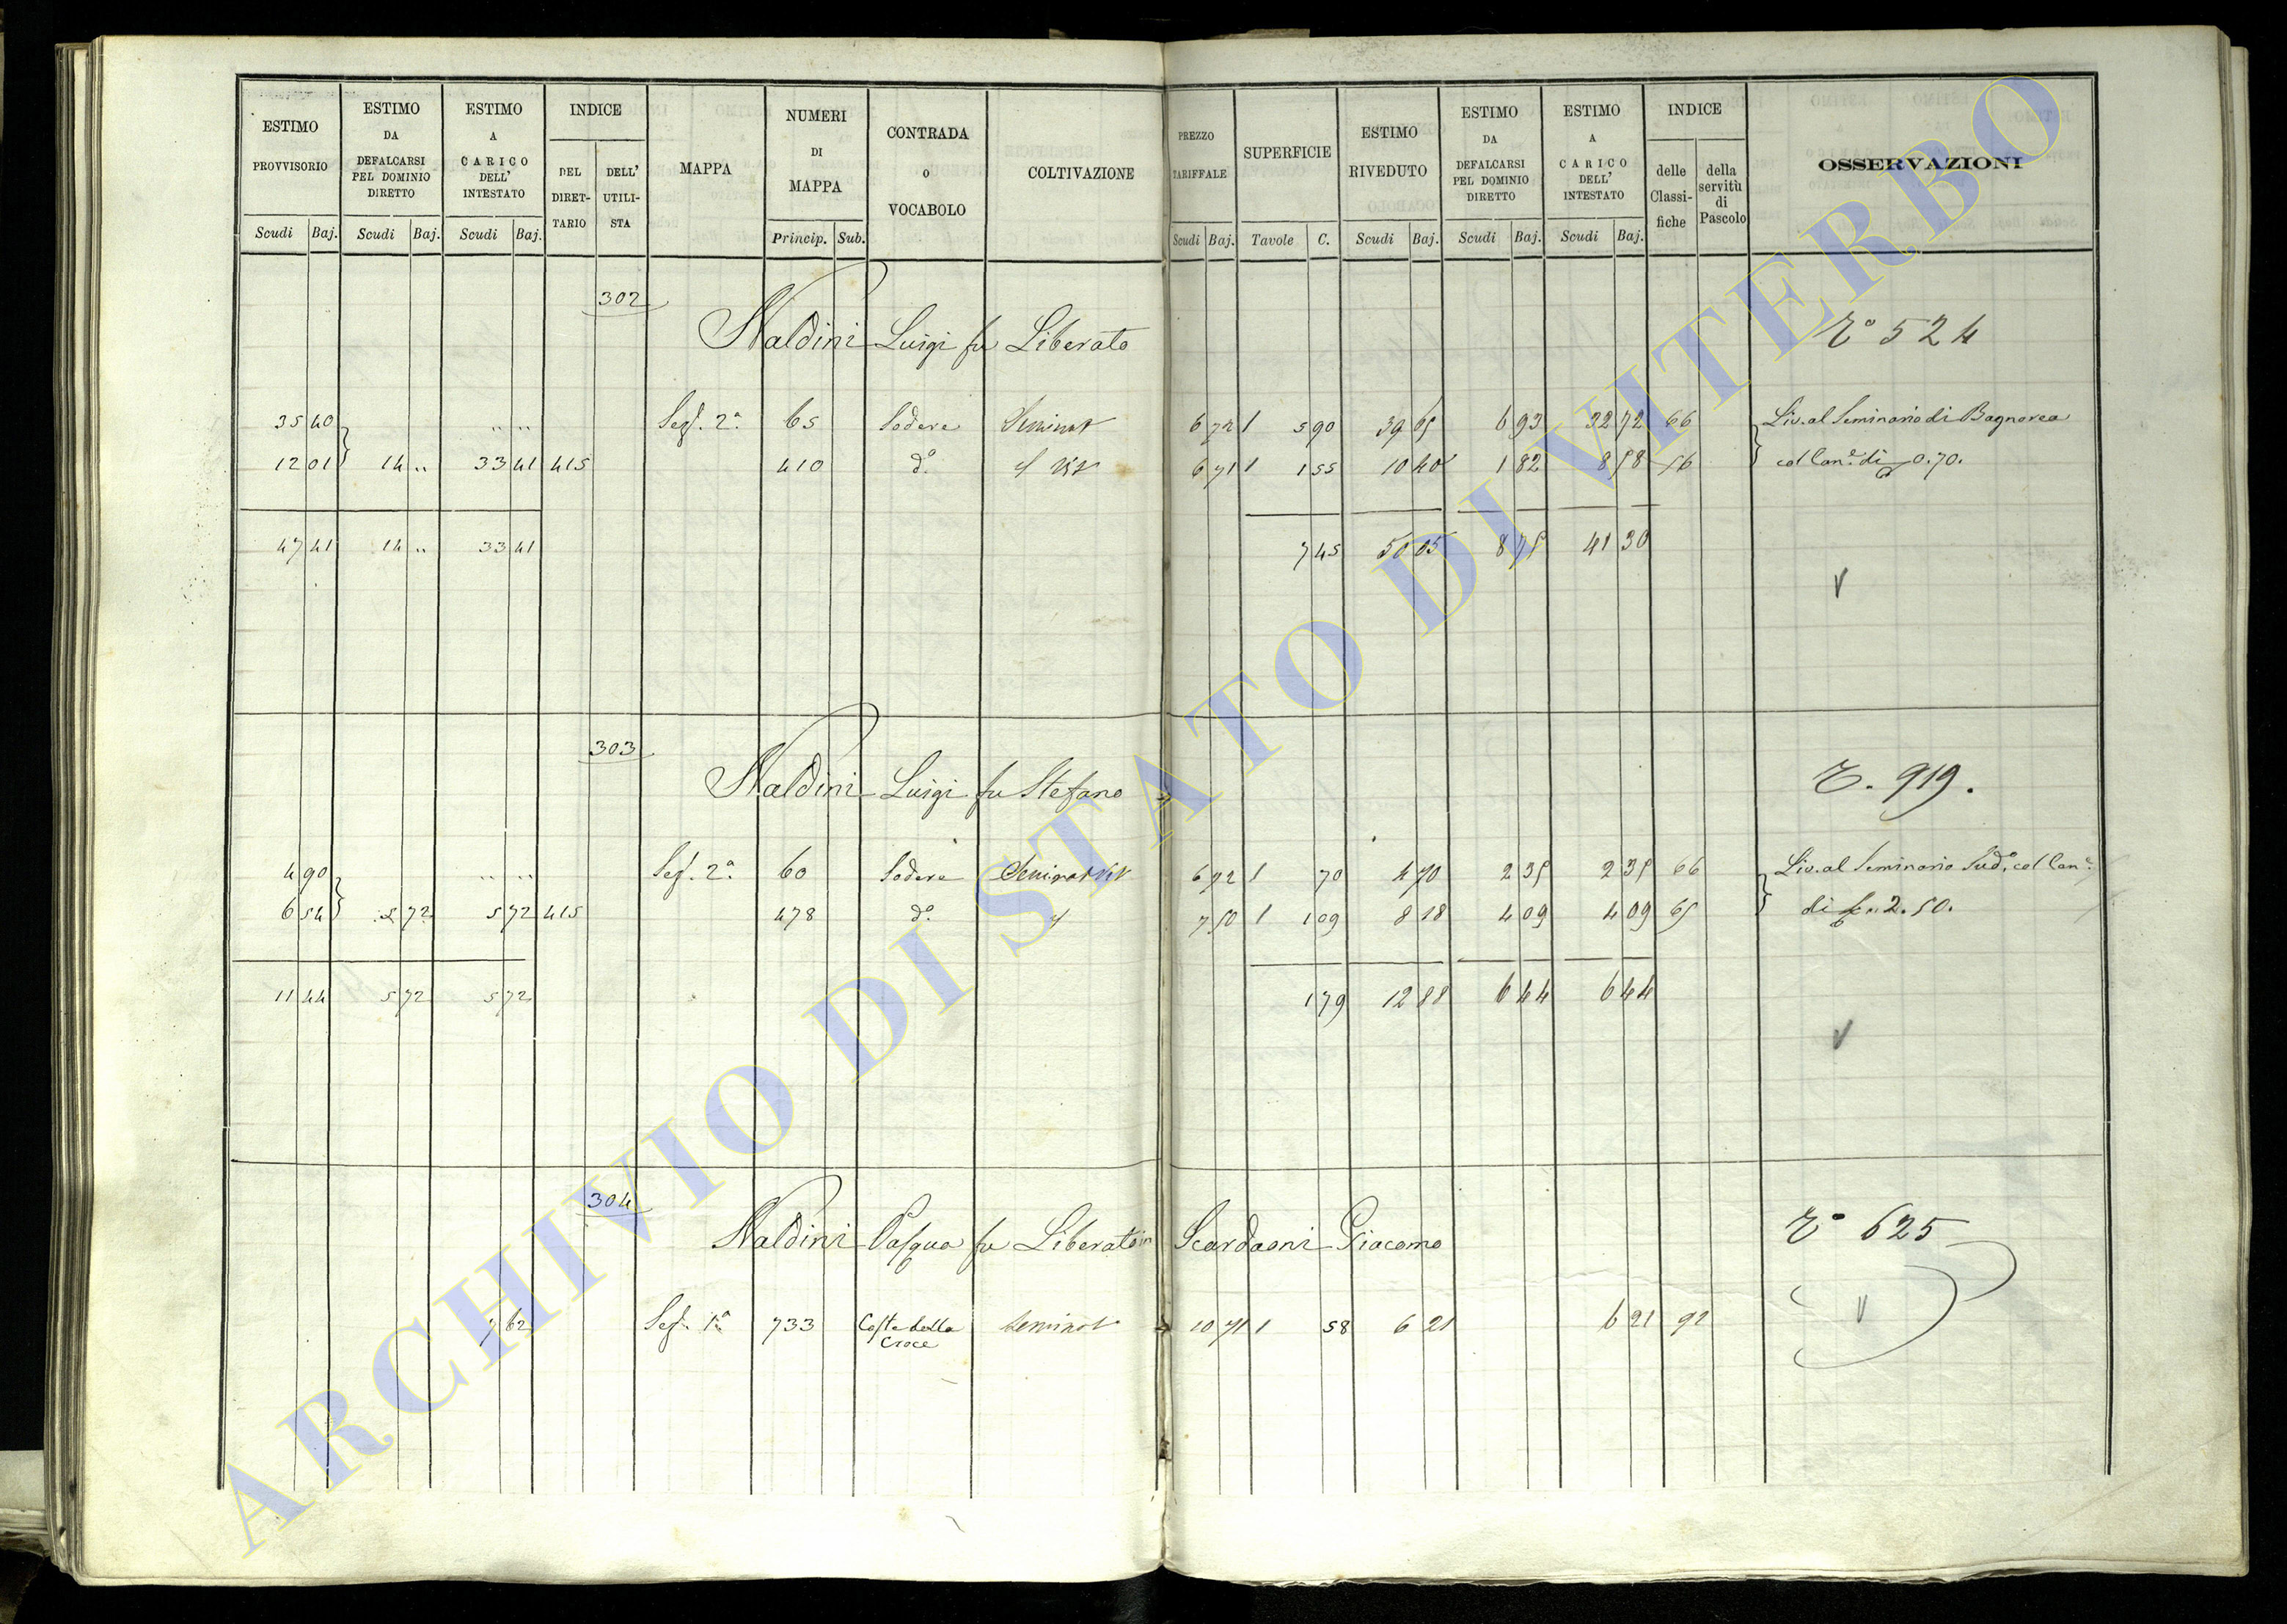 ESTIMO PROVVISORIO
Scudi Baj.
ESTIMO DA DEFALCARSI PEL DOMINIO DIRETTO
Scudi Baj.
ESTIMO A CARICO DELL' INTESTATO
Scudi Baj.
INDICE
DEL DIRET- TARIO
DELL' UTILI- STA
MAPPA
NUMERI DI MAPPA
Princip. Sub.
CONTRADA O VOCABOLO
COLTIVAZIONE
PREZZO TARIFFALE
Scudi Baj.
SUPERFICIE
Tavole C.
ESTIMO RIVEDUTO
Scudi Baj.
ESTIMO DA DEFALCARSI PEL DOMINIO DIRETTO
Scudi Baj.
ESTIMO A CARICO DELL' INTESTATO
Scudi Baj.
INDICE
delle Classi- fiche
della servitù di Pascolo
OSSERVAZIONI
302
Naldini Luigi fu Liberato 524
35 40 „ „ Sez. 2.a 65 Sodere Seminat 6 72 1 5 90 39 65 6 93 32 72 66 Liv. al Seminario di Bagnorea
12 01 14 „ 33 41 415 410 d.o Vit 6 71 1 1 55 10 40 1 82 8 58 56 col Can.e di 0.70.
47 41 14 „ 33 41 7 45 50 05 8 75 41 30
V
303
Naldini Luigi fu Stefano 919.
4 90 „ „ Sez. 2.a 60 Sodere Seminat Vit 6 72 1 70 4 70 2 35 2 35 66 Liv. al Seminario Sud.o col Can.e
6 54 5 72 5 72 415 478 d.o 7 50 1 1 09 8 18 4 09 4 09 65 di 2.50.
11 44 5 72 5 72 1 79 12 88 6 44 6 44
V
304
Naldini Pasqua fu Liberato in Scardaoni Giacomo 625
7 62 Sez. 1.a 733 Coste della Croce Seminat 10 71 1 58 6 21 6 21 92
V
ARCHIVIO DI STATO DI VITERBO